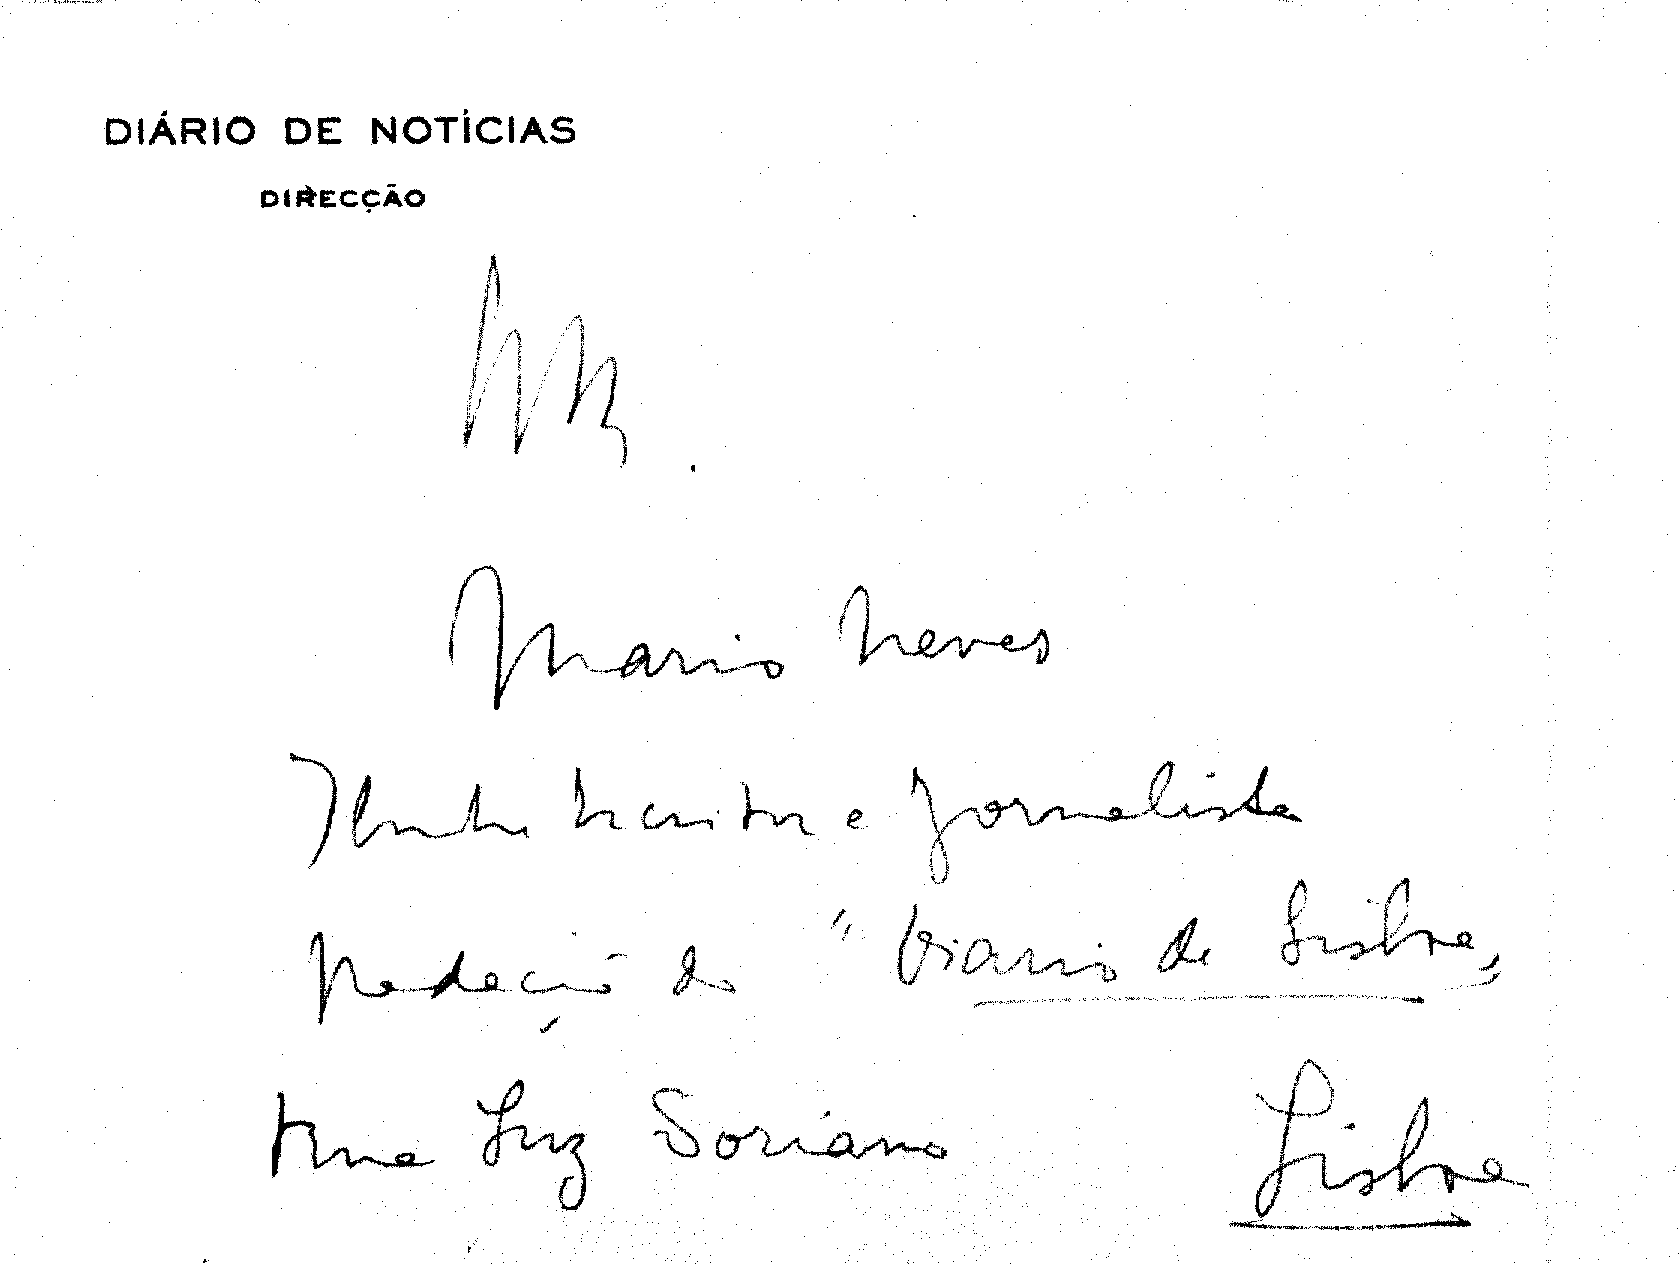 DIÁRIO DE NOTÍCIAS
DIRECÇÃO
Mario Neves
Ilustre Escritor e Jornalista
Redacção do "Diario de Lisboa"
Rua Luz Soriano Lisboa